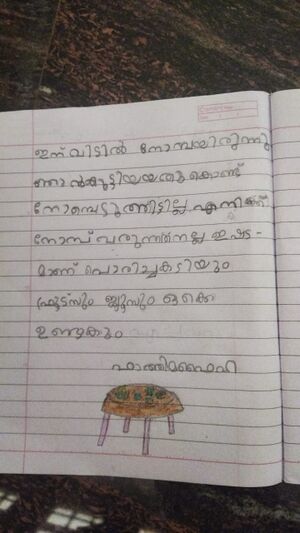 ഇന്ന് വിട്ടിൽ നോമ്പയിരുന്നു
ഞാൻകുട്ടിയയതു കൊണ്ട്
നോമ്പെടുത്തിട്ടില്ല എനിക്ക്
നോമ്പ് വരുന്നത് നല്ല ഇഷ്ട-
മാണ് പൊരിച്ചകടിയും
ഫ്രൂട്ടസും ജ്യൂസും ഒക്കെ
ഉണ്ടകും
ഫാത്തിമഫൈഹ